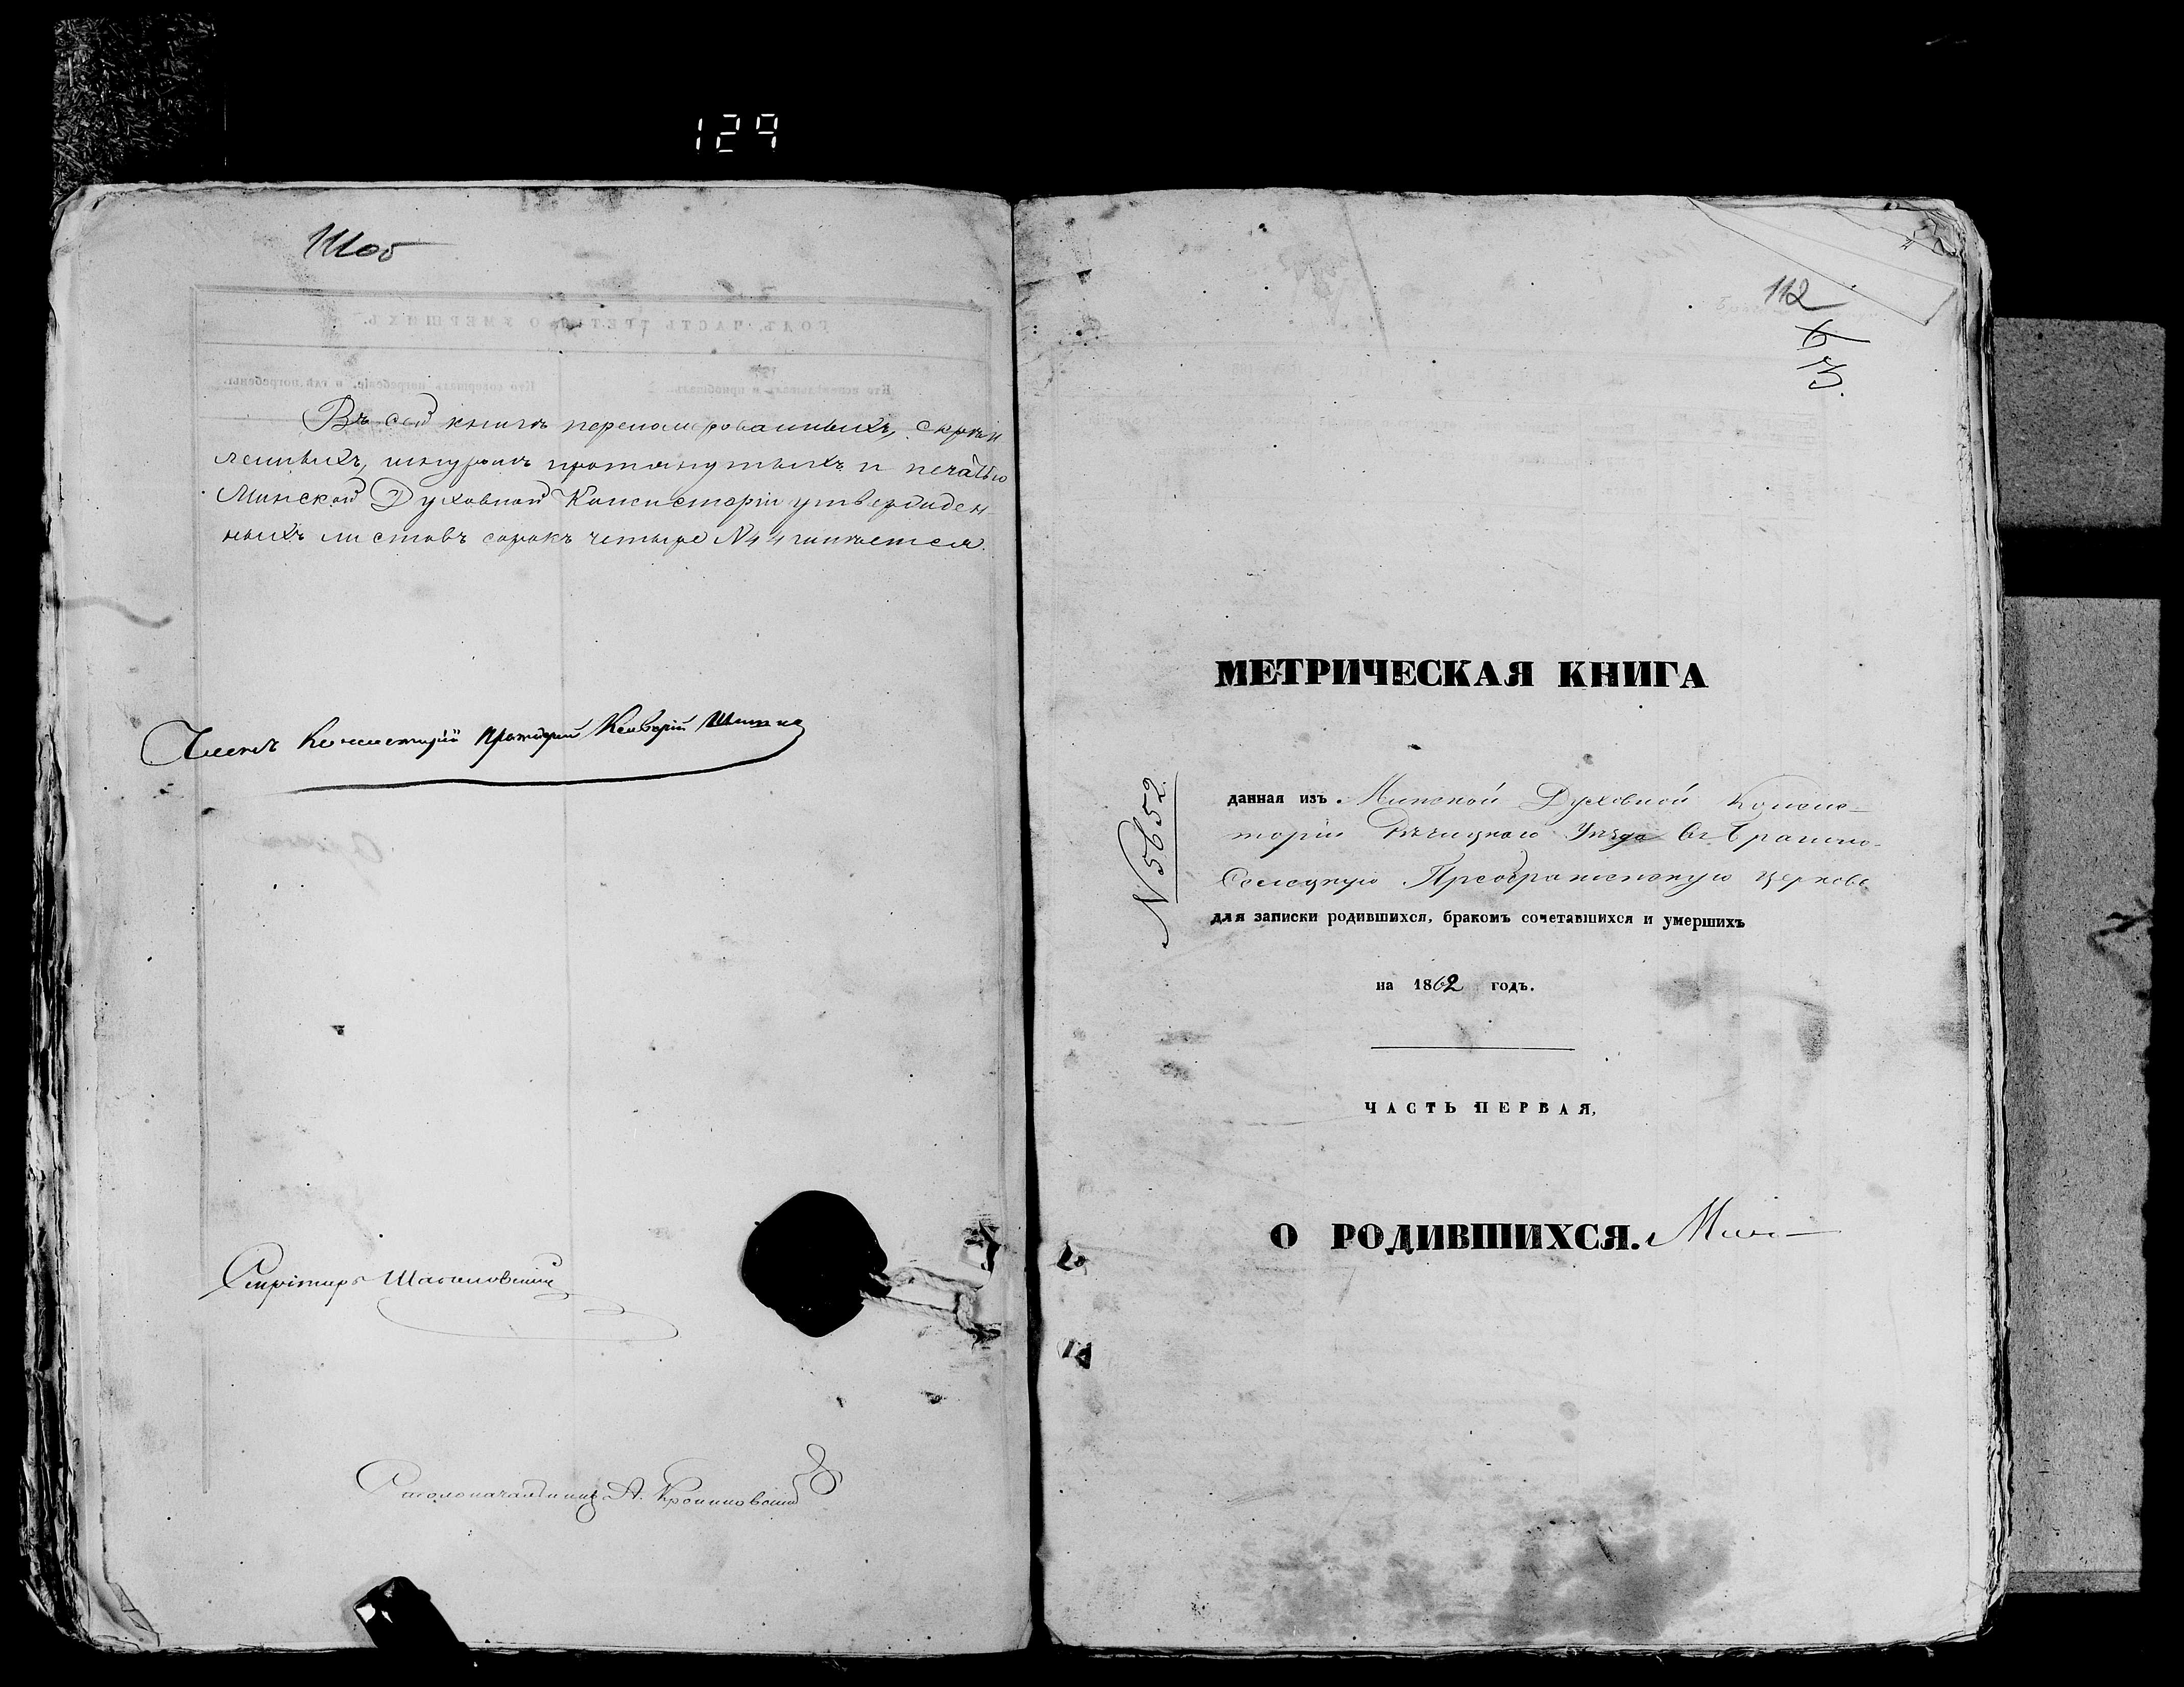 129
111об
Въ сей книгѣ перномерованныхъ, скрѣп
ленныхъ, шнуромъ протянутыхъ и печатью
Минской Духовной Консисторіи утвержден
ныхъ листовъ сорокъ четыре №44 чинается.
Членъ Консисторіи Протоіерей
Секретарь
Столоначальникъ А.
112
МЕТРИЧЕСКАЯ КНИГА
№ 5652.
данная изъ Минской Духовной Консис-
торіи Рѣчицкаго Уѣзда въ Брагино-
Селецкую Преображенскую церковь
для записки родившихся, бракомъ сочетавшихся и умершихъ
на 1862 годъ.
ЧАСТЬ ПЕРВАЯ,
О РОДИВШИХСЯ.